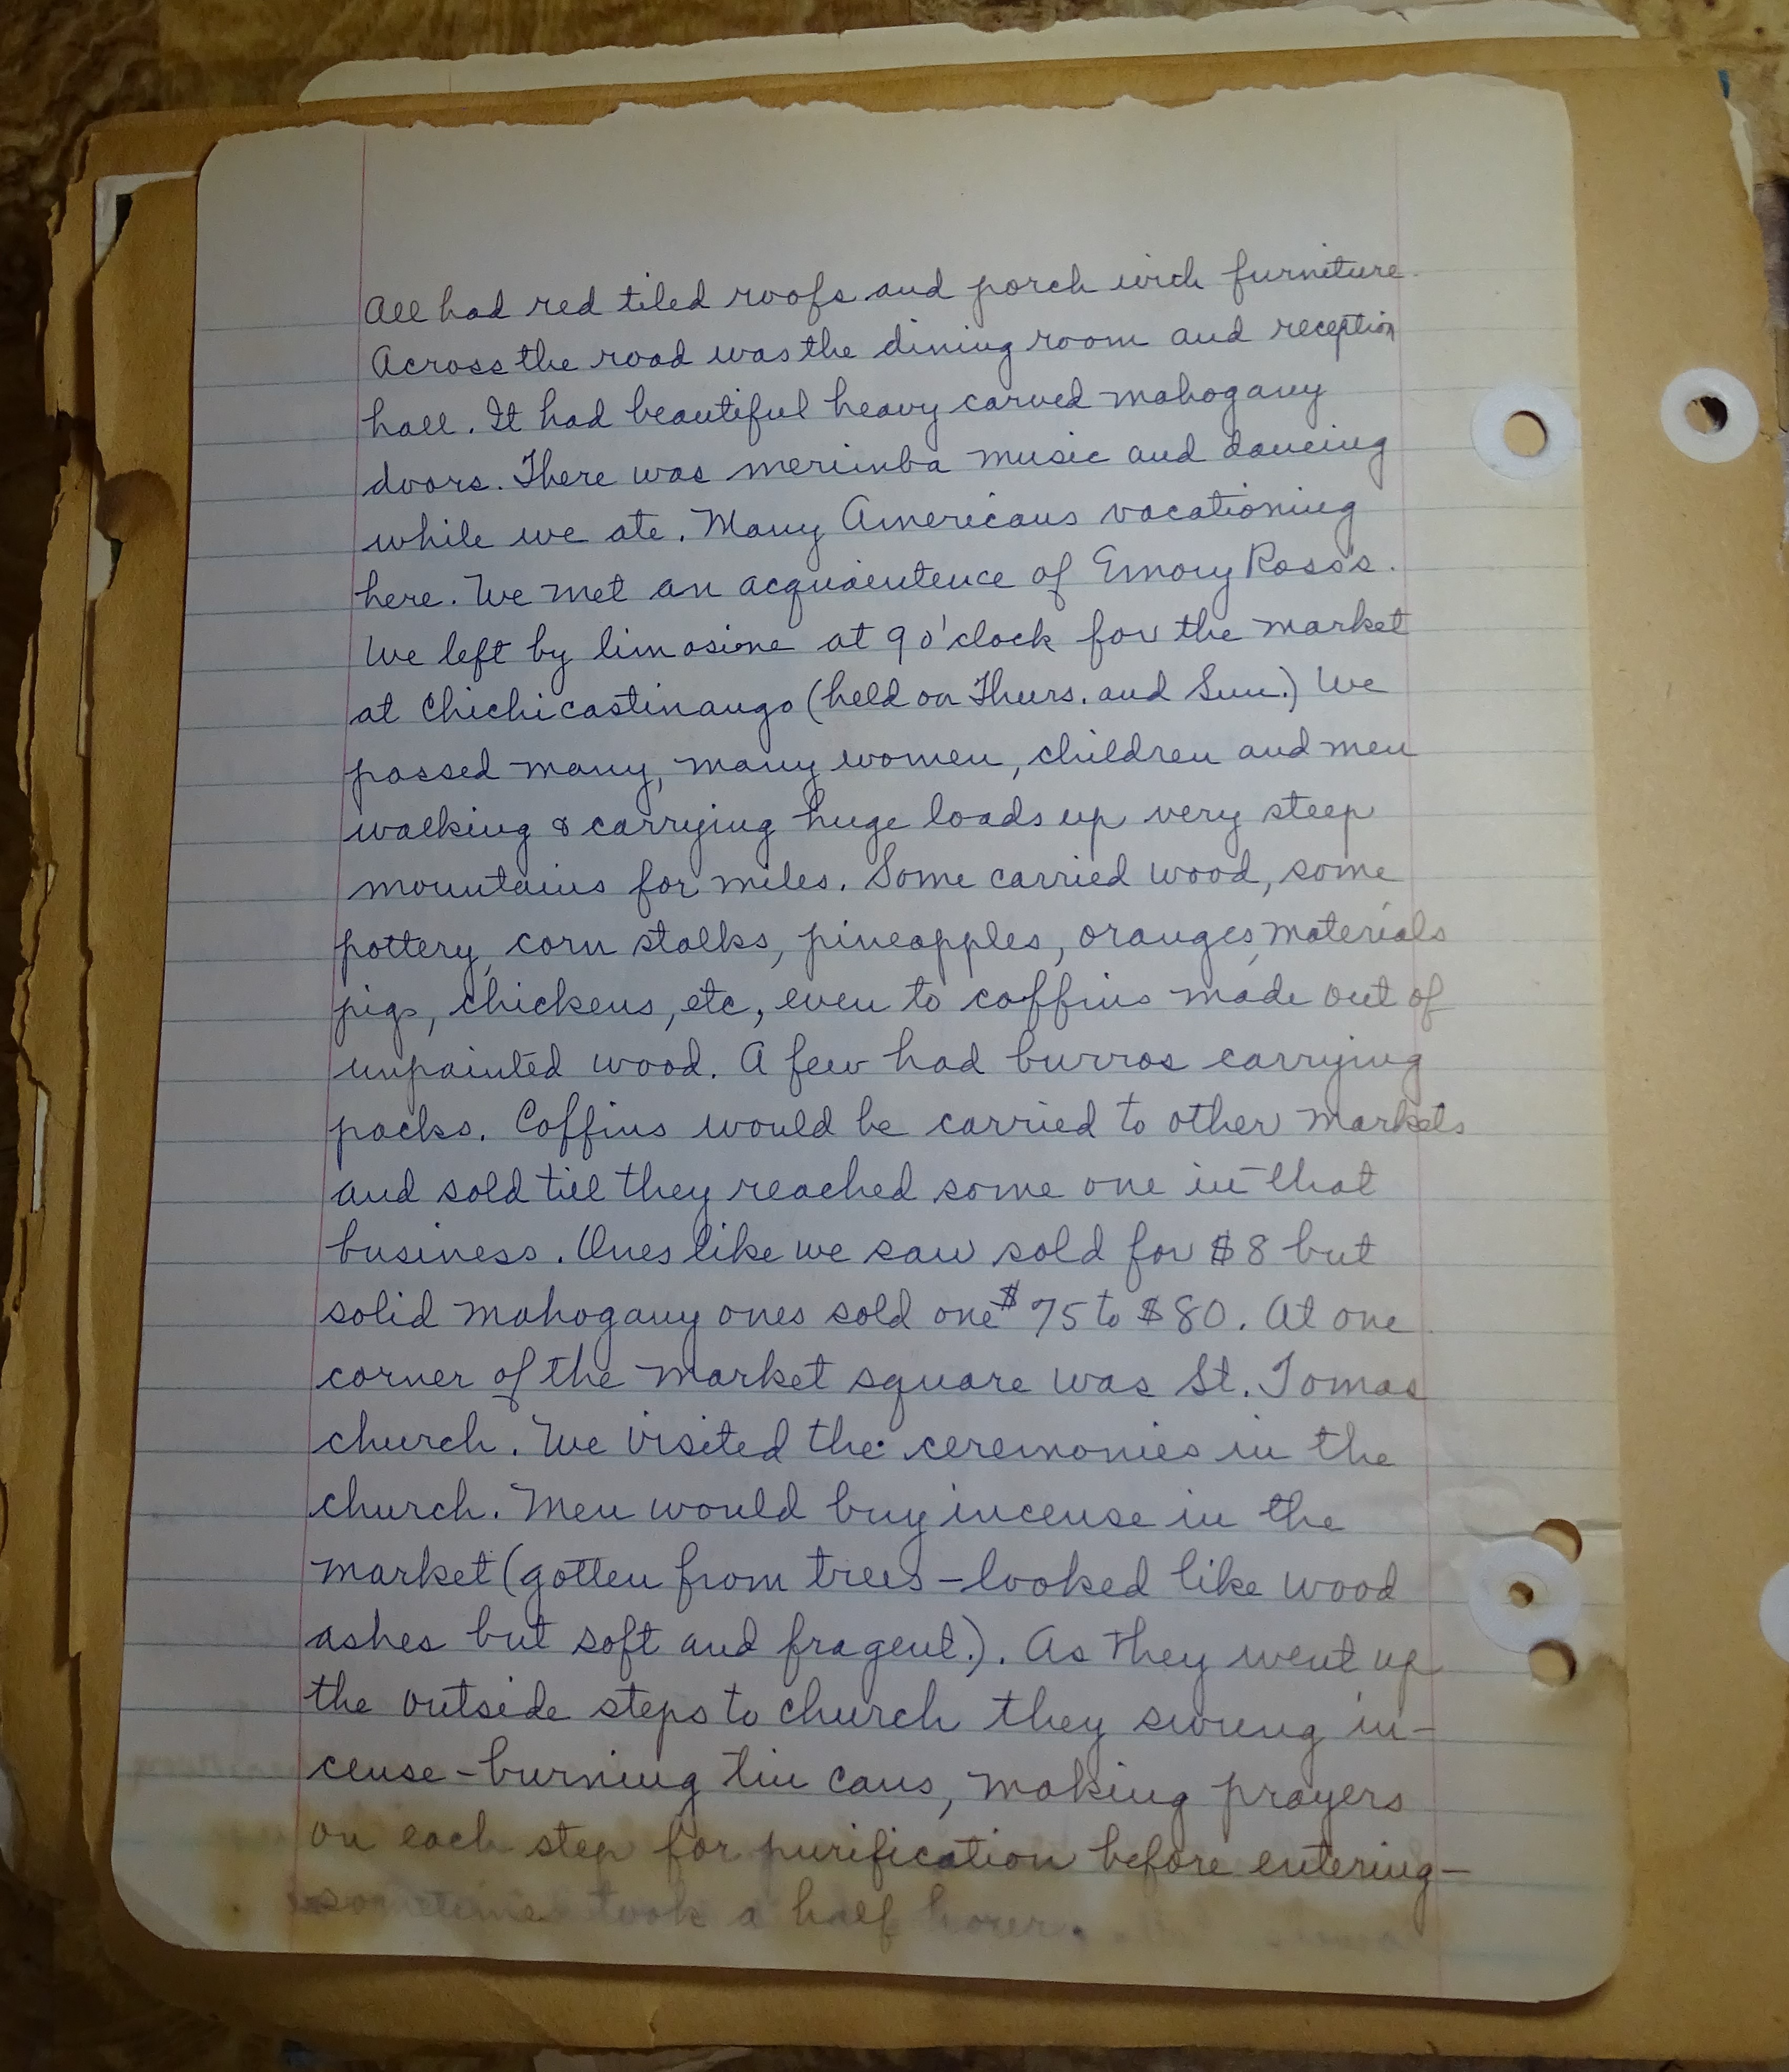 All had red tiled roofs and porch with furniture.
Across the road was the dining room and reception
hall. It had beautiful heavy carved mahogany
doors. There was merimba music and dancing
while we ate. Many Americans vacationing
here. We met an acquaintence of Emory Ross's.
We left by limosine at 9 o'clock for the market
at Chichicastinango (held on Thurs. and Sun.) We
passed many, many women, children and men
walking & carrying huge loads up very steep
mountains for miles. Some carried wood, some
pottery, corn stalks, pineapples, oranges, materials
pigs, chickens, etc, even to coffins made out of
unpainted wood. A few had burros carrying
packs. Coffins would be carried to other markets
and sold till they reached some one in that
business. Ones like we saw sold for $8 but
solid mahogany ones sold one $75 to $80. At one
corner of the market square was St. Tomas
church. We visited the ceremonies in the
church. Men would buy incense in the
market (gotten from trees - looked like wood
ashes but soft and fragent.). As they went up
the outside steps to church they swung in-
cense-burning tin cans, making prayers
on each step for purification before entering-
sometime took a half hour.